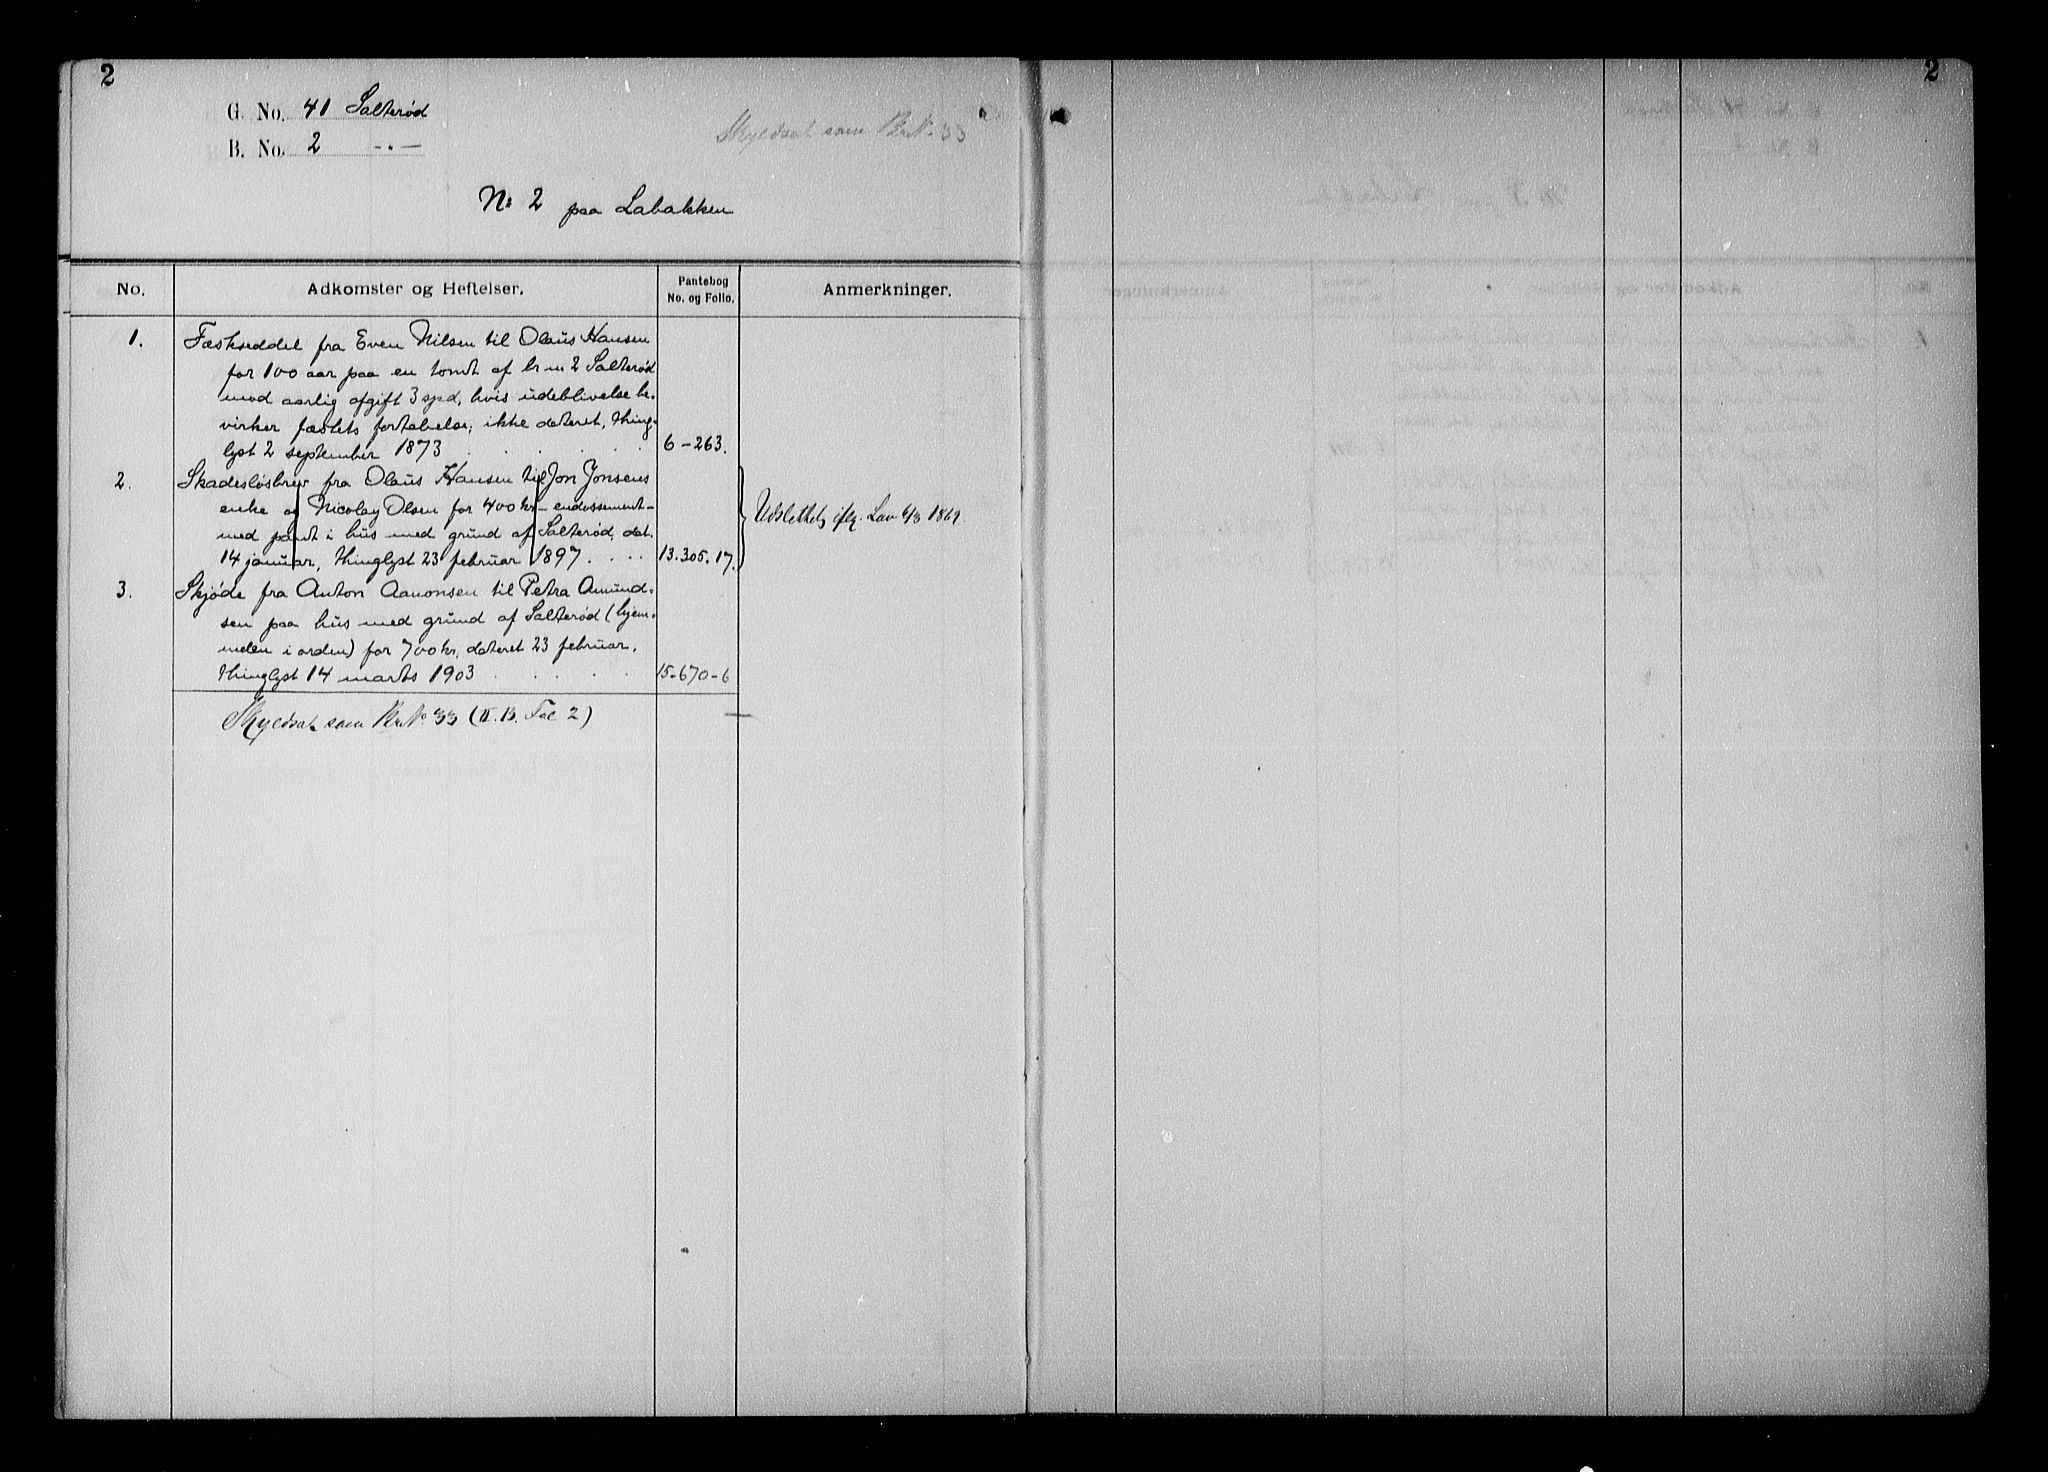 2
2
G. No. 41 Salterød
B. No. 2 -.-
Skyldsat som Br.No. 33
No 2 paa Labakken
No. Adkomster og Heftelser. Pantebog No. og Folio. Anmerkninger.
1. Fæsteseddel fra Even Nilsen til Olaus Hansen
for 100 aar paa en tomt af br.no 2 Salterød
mod aarlig afgift 3 spd, hvis udeblivelse be-
virker fæstets fortabelse; ikke dateret, thing-
lyst 2 september 1873 . . . . 6-263.
2. Skadesløsbrev fra Olaus Hansen til Jon Jonsens
enke og Nicolay Olsen for 400 kr - endossement -
med pandt i hus med grund af Salterød, dat.
14 januar, thinglyst 23 februar 1897 . . . . 13.305.17.
Udslettet iflg. Lov
3. Skjøde fra Anton Aanonsen til Petra Amund-
sen paa hus med grund af Salterød (hjem-
melen i orden) for 700 kr, dateret 23 februar,
thinglyst 14 marts 1903 . . . . . 15-670-6
Skyldsat som Br.No. 33 (II. B. Fol 2) —